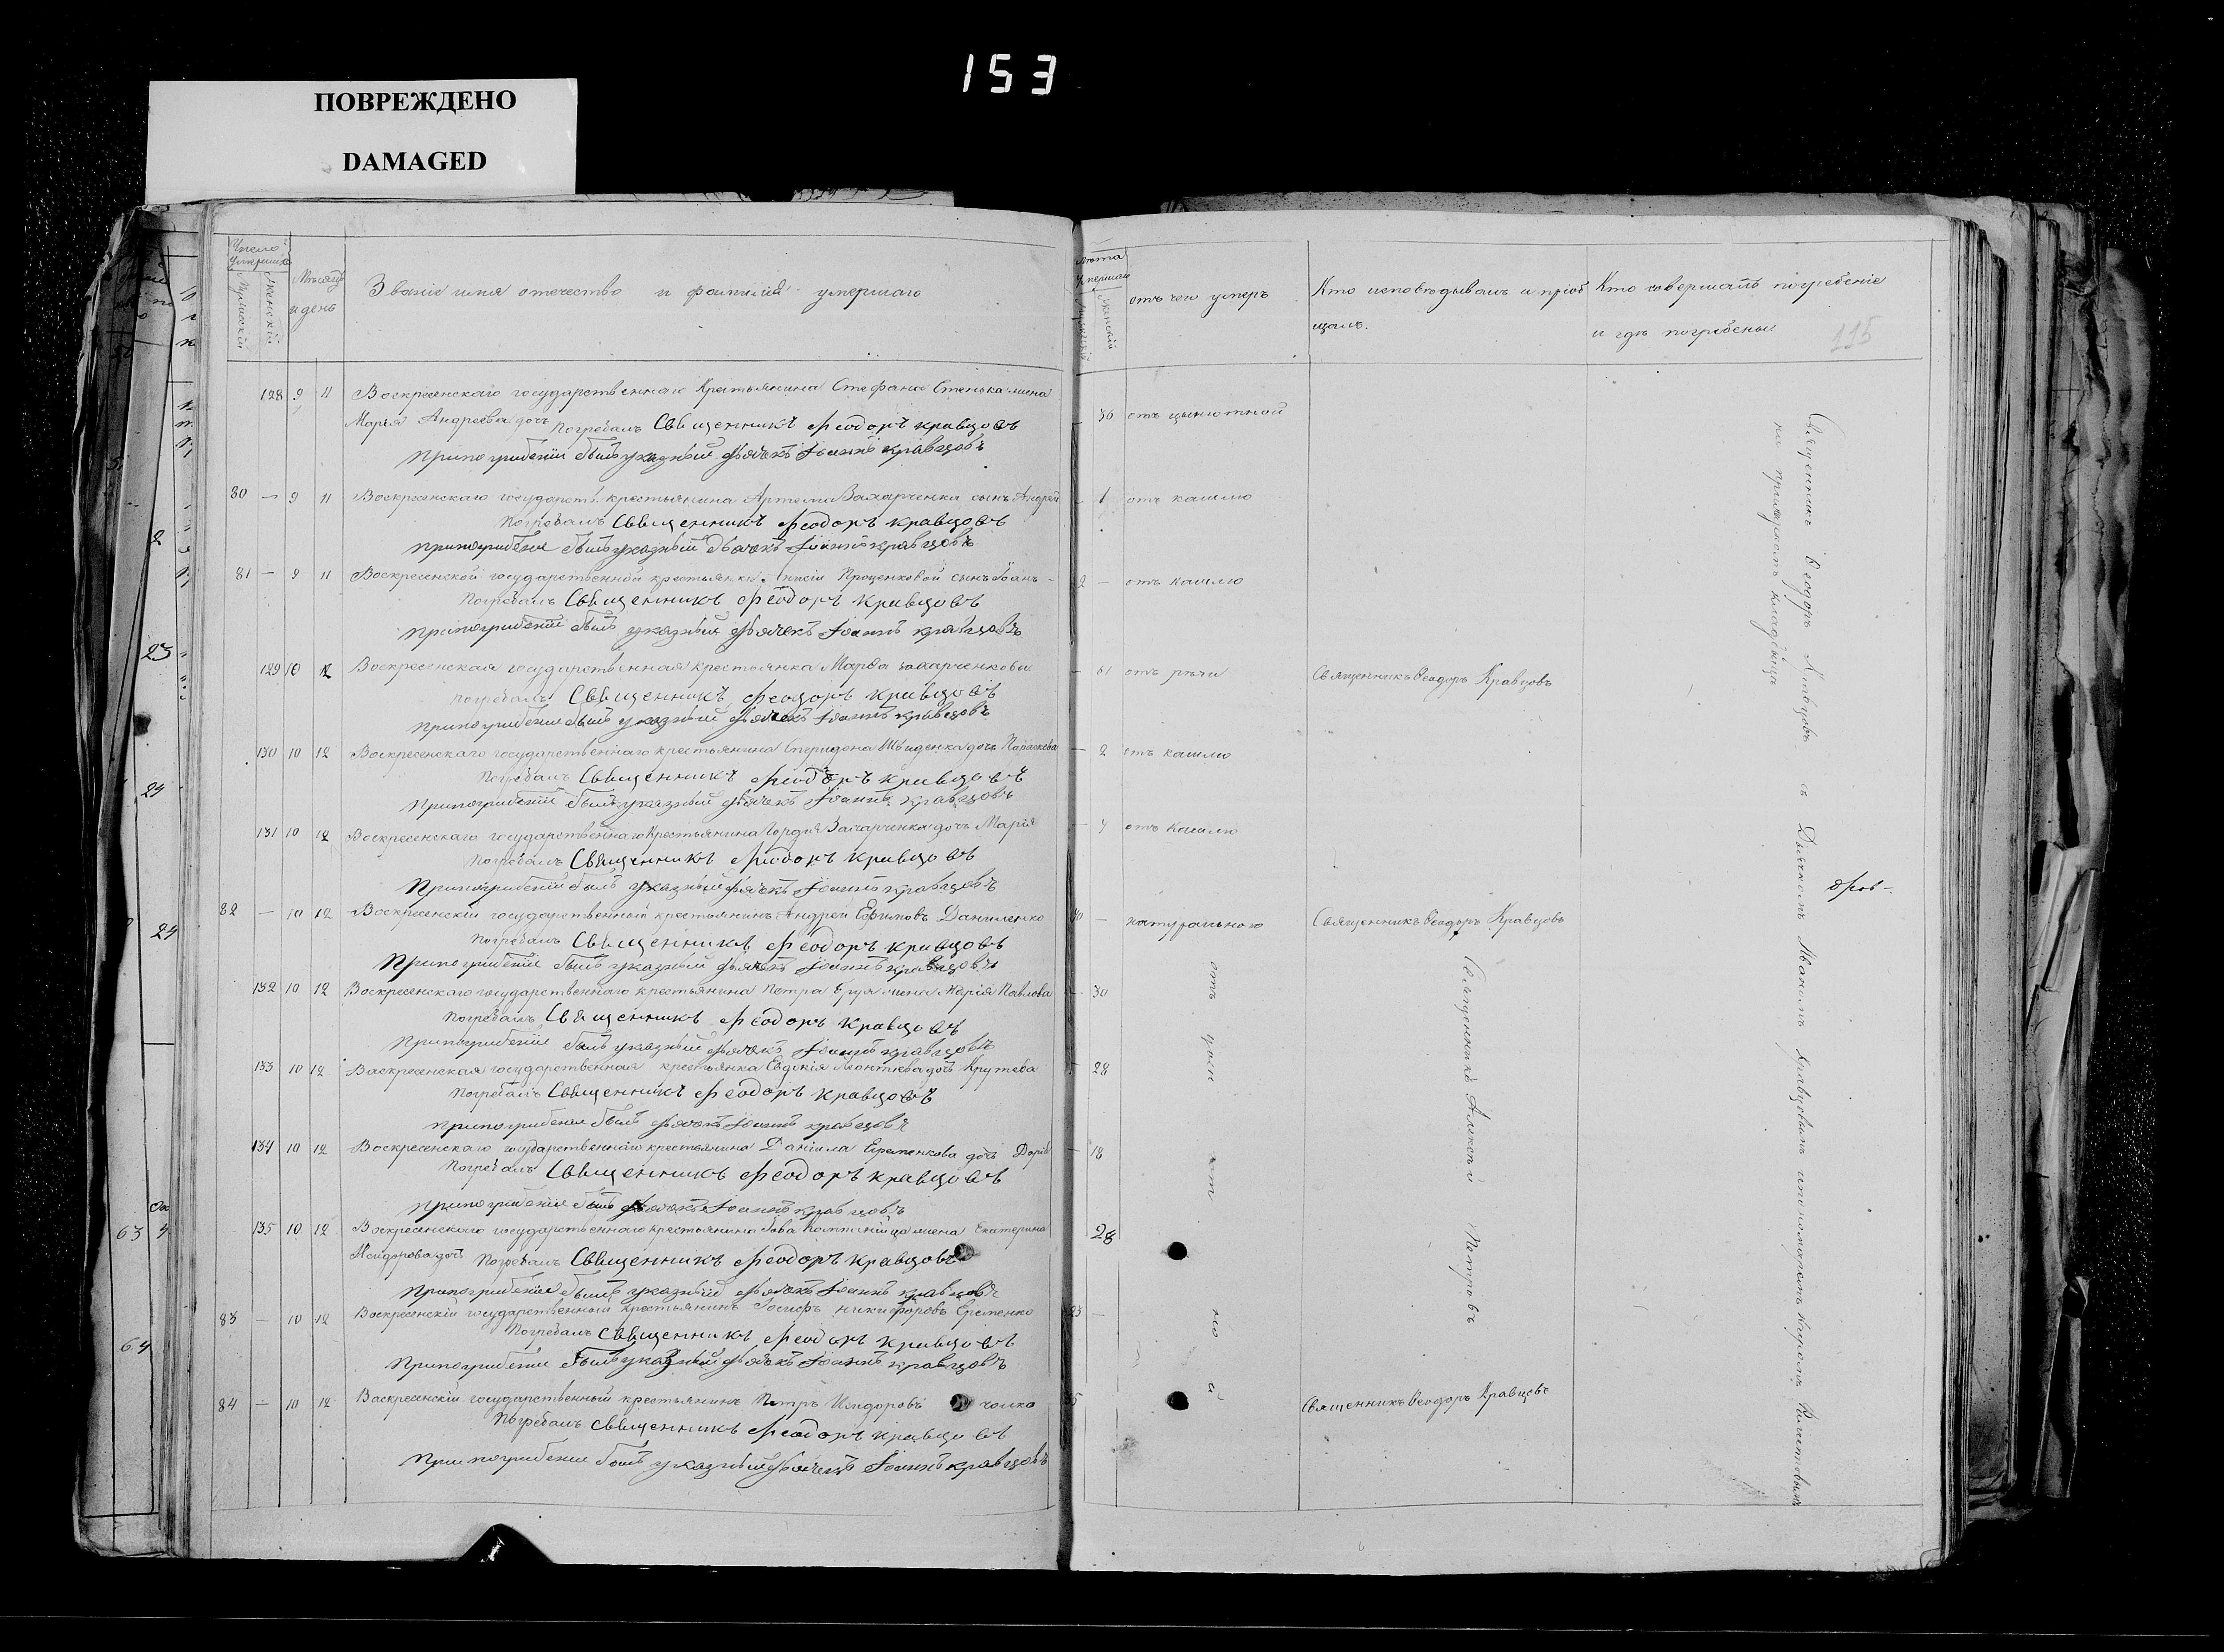 153
ПОВРЕЖДЕНО
DAMAGED
Число умершихъ
Мужскій
Женскій
Мѣсяцъ и день
Званіе имя отечество и фамилія умершаго
Лѣта умершаго
Мужскій
Женскій
отъ чего умеръ
Кто исповѣдывалъ и пріоб
щалъ.
Кто совершалъ погребеніе
и гдѣ погребены
115
128 9 11 Воскресенскаго государственнаго Крестьянина Стефана Стенька жена 30 отъ цынготной
Марія Андреева дочь Погребалъ Священникъ Феодоръ Кравцовъ
При погребеніи былъ указный дьячекъ Іоаннъ Кравцовъ
80 — 9 11 Воскресенскаго государств. крестьянина Артема Захарченка сынъ Андрей 1 отъ кашлю
Погребалъ Священникъ Феодоръ Кравцовъ
При погребеніи былъ указный дьячекъ Іоаннъ Кравцовъ
81 — 9 11 Воскресенской государственной крестьянки Проценковой сынъ Іоанъ 2 — отъ кашлю
Погребалъ Священникъ Феодоръ Кравцовъ
При погребеніи былъ указный дьячекъ Іоаннъ Кравцовъ
129 10 12 Воскресенская государственная крестьянка Марфа Захарченкова — 61 отъ Священникъ Ѳеодоръ Кравцовъ
Погребалъ Священникъ Феодоръ Кравцовъ
При погребеніи былъ указный дьячекъ Іоаннъ Кравцовъ
130 10 12 Воскресенскаго государственнаго крестьянина Спиридона Швиденка дочь Параскева — 2 отъ кашлю
Погребалъ Священникъ Феодоръ Кравцовъ
При погребеніи былъ указный дьячекъ Іоаннъ Кравцовъ
131 10 12 Воскресенскаго государственнаго Крестьянина Гордія Захарченка дочь Марія — 4 отъ кашлю
Погребалъ Священникъ Феодоръ Кравцовъ
При погребеніи былъ указный дьячекъ Іоаннъ Кравцовъ
82 — 10 12 Воскресенскій государственный крестьянинъ Андрей Ефимовъ Даниленко — натуральною Священникъ Ѳеодоръ Кравцовъ
Погребалъ Священникъ Феодоръ Кравцовъ
При погребеніи былъ указный дьячекъ Іоаннъ Кравцовъ
132 10 12 Воскресенскаго государственнаго крестьянина Петра жена Марія Павлова — 30
Погребалъ Священникъ Феодоръ Кравцовъ
При погребеніи былъ указный дьячекъ Іоаннъ Кравцовъ
133 10 12 Воскресенская государственная крестьянка Евдокія Леонтьева дочь Крутева 28
Погребалъ Священникъ Феодоръ Кравцовъ
При погребеніи былъ дьячекъ Іоаннъ Кравцовъ
134 10 12 Воскресенскаго государственнаго крестьянина Даніила Еременкова дочь — 18
Погребалъ Священникъ Феодоръ Кравцовъ
При погребеніи былъ дьячекъ Іоаннъ Кравцовъ
135 10 12 Воскресенскаго государственнаго крестьянина жена Екатерина 28
Исидорова дочь Погребалъ Священникъ Феодоръ Кравцовъ
При погребеніи былъ указный дьячекъ Іоаннъ Кравцовъ
83 — 10 12 Воскресенскій государственный крестьянинъ Іосифъ Никифоровъ Еременко —
Погребалъ Священникъ Феодоръ Кравцовъ
При погребеніи былъ указный дьячекъ Іоаннъ Кравцовъ
84 — 10 12 Воскресенскій государственный крестьянинъ Петръ Исидоровъ Священникъ Ѳеодоръ Кравцовъ
Погребалъ Священникъ Феодоръ Кравцовъ
При погребеніи былъ указный дьячекъ Іоаннъ Кравцовъ
отъ цын гот но й
Священникъ Алексѣй Петровъ
Священникъ Ѳеодоръ съ Дьячкомъ Иваномъ Кравцовымъ и пономаремъ
на приходскомъ кладбищѣ
2
23
24
24
63
64